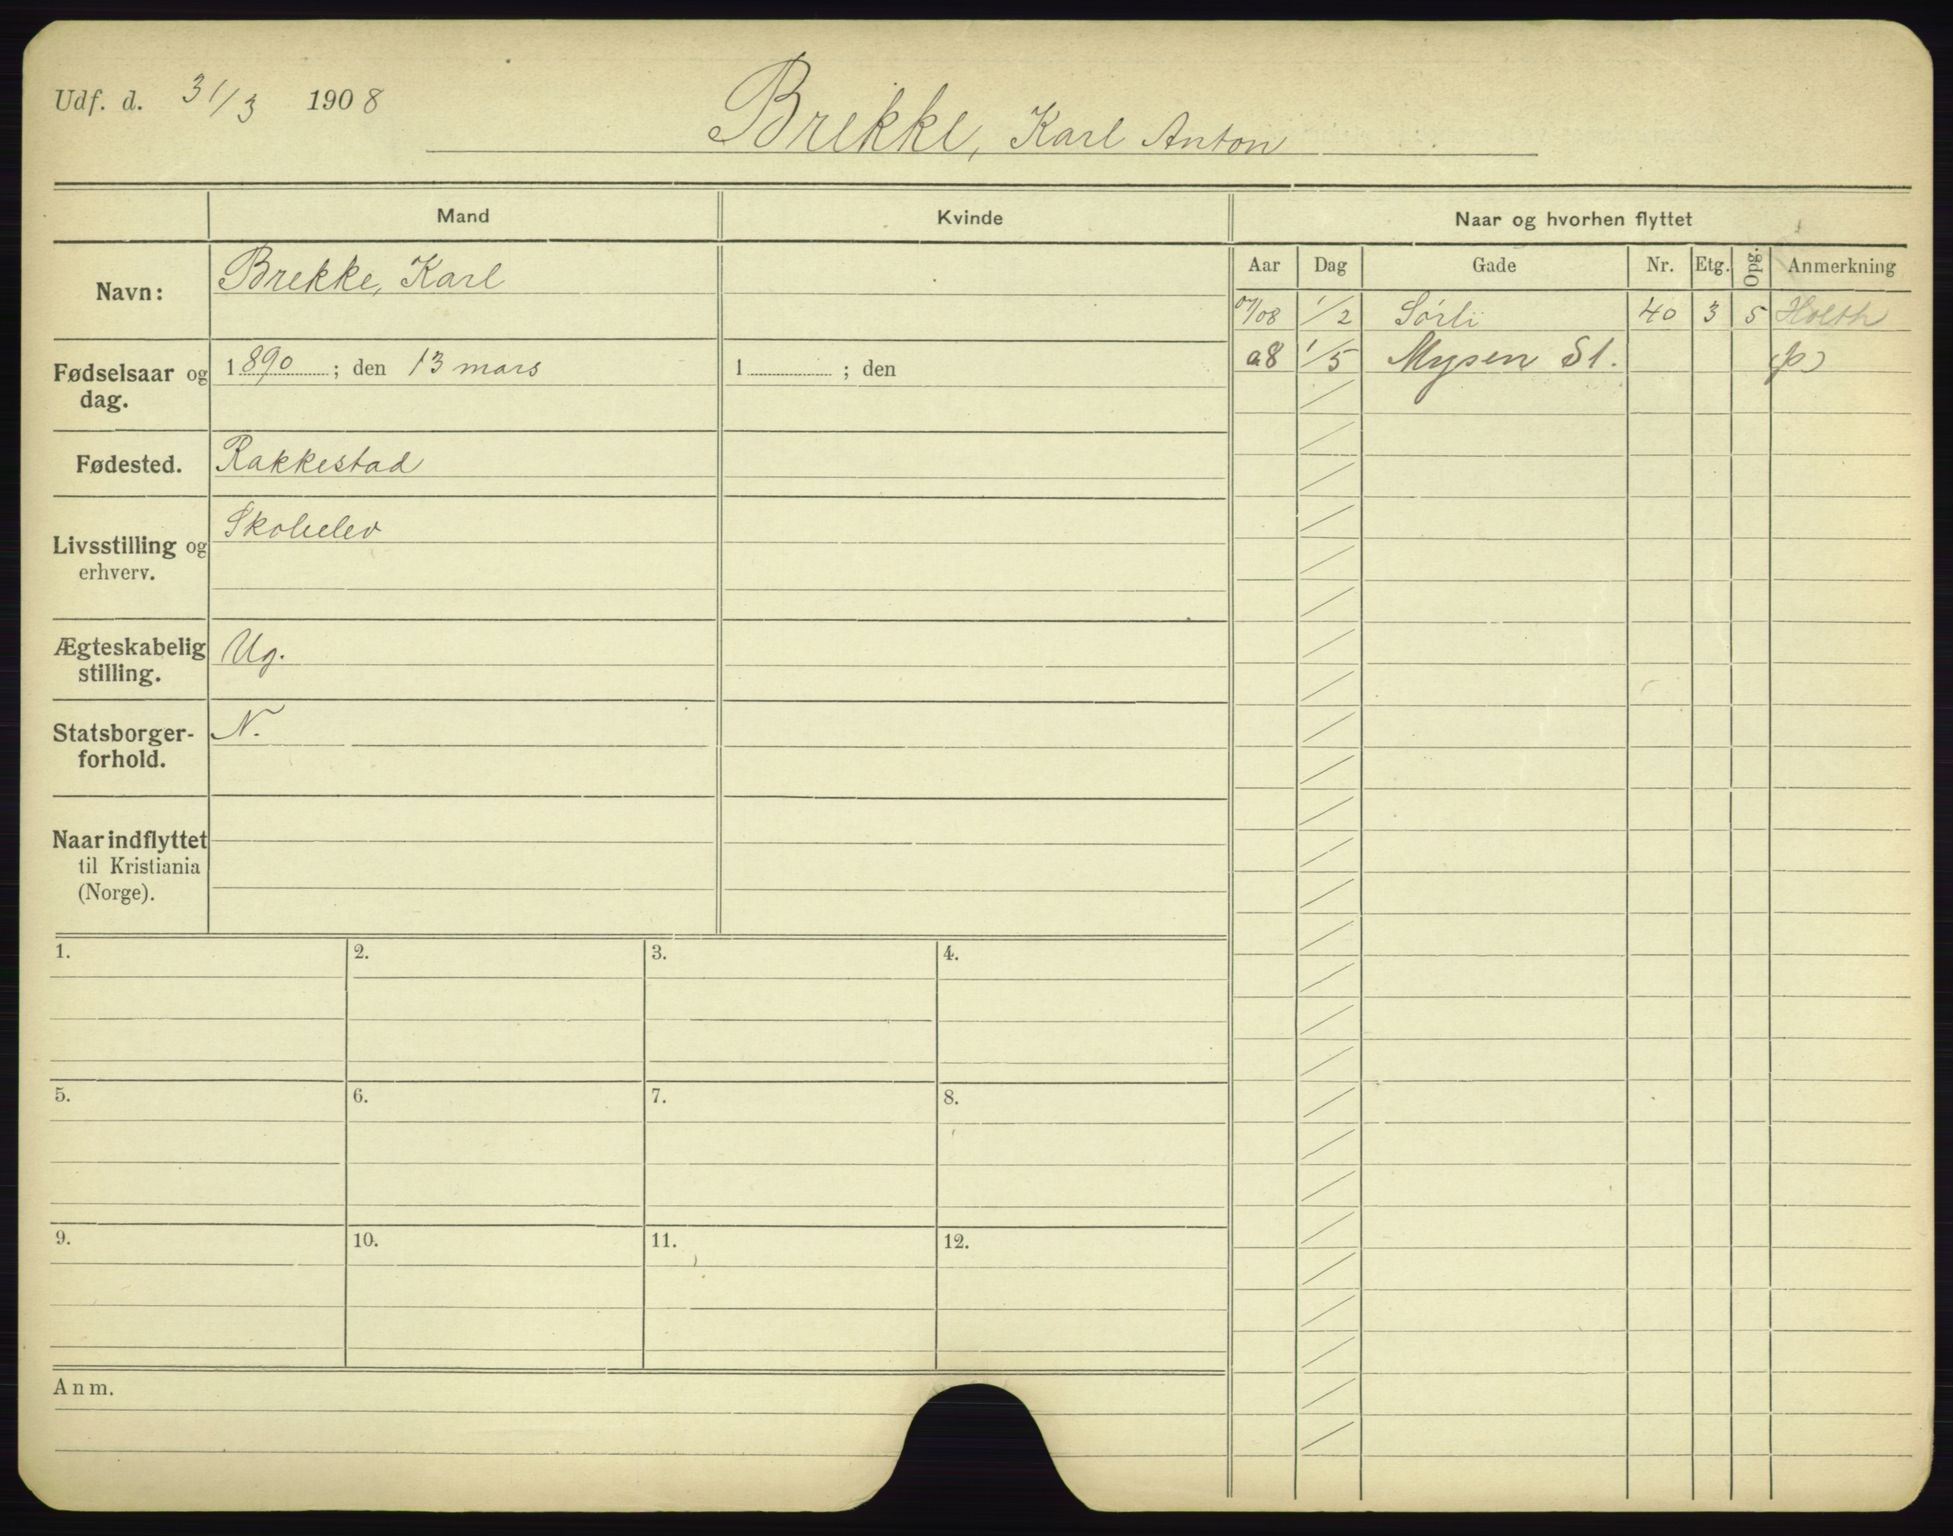 Udf. d. 31/3 1908
Brekke, Karl Anton
Mand Kvinde Naar og hvorhen flyttet
Aar Dag Gade Nr. Etg. Opg. Anmerkning
Navn: Brekke, Karl
07/08 1/2 Sörli 40 3 5 Holth
Fødselsaar og dag. 1890; den 13 mars 1 ; den
08 1/5 Mysen St. (p)
Fødested. Rakkestad
Livsstilling og erhverv. Skoleelev
Ægteskabelig stilling. Ug.
Statsborger-
forhold. N.
Naar indflyttet
til Kristiania
(Norge).
1. 2. 3. 4.
5. 6. 7. 8.
9. 10. 11. 12.
Anm.